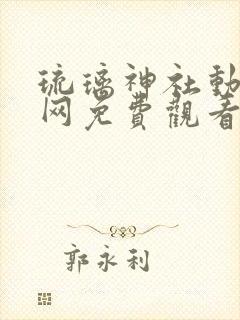 琉璃神社動
网免費觀看
郭永利